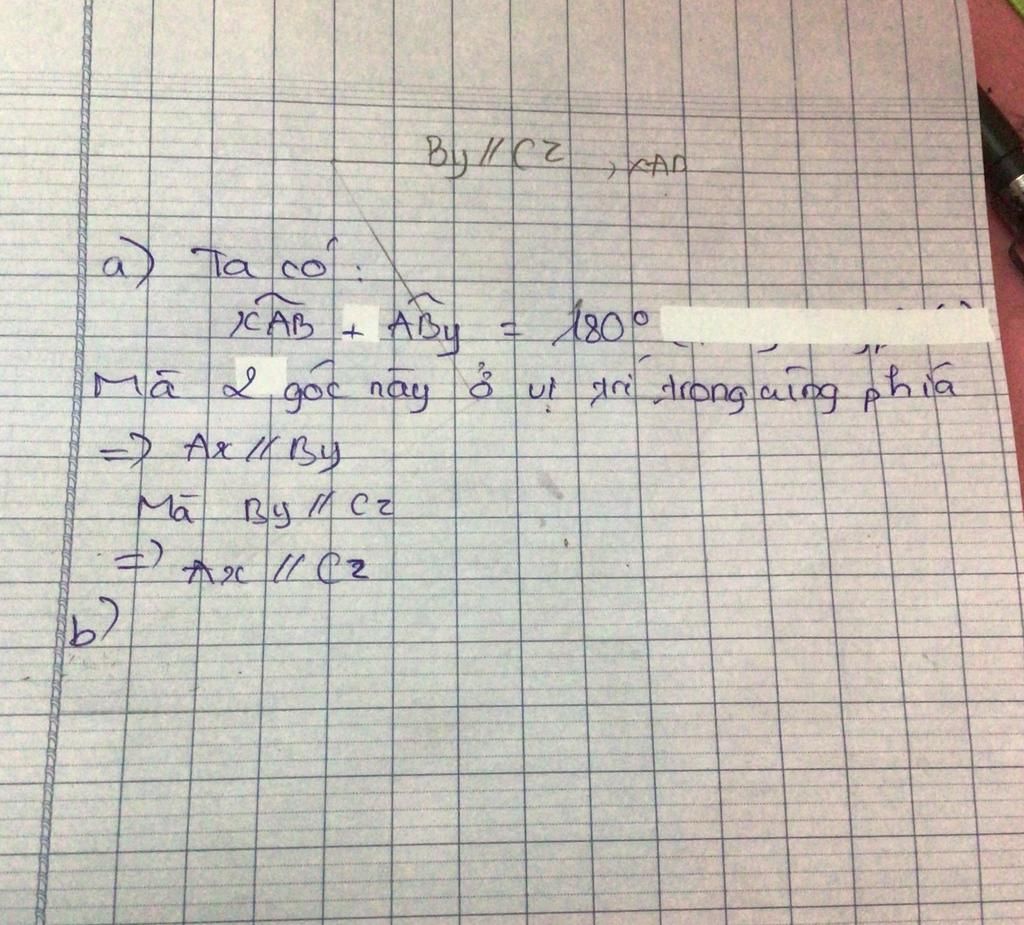 By // Cz , xAD
a) Ta có :
xAB + ABy = 180°
Mà 2 góc này ở vị trí trong cùng phía
=> Ax // By
Mà By // Cz
=> Ax // Cz
b)